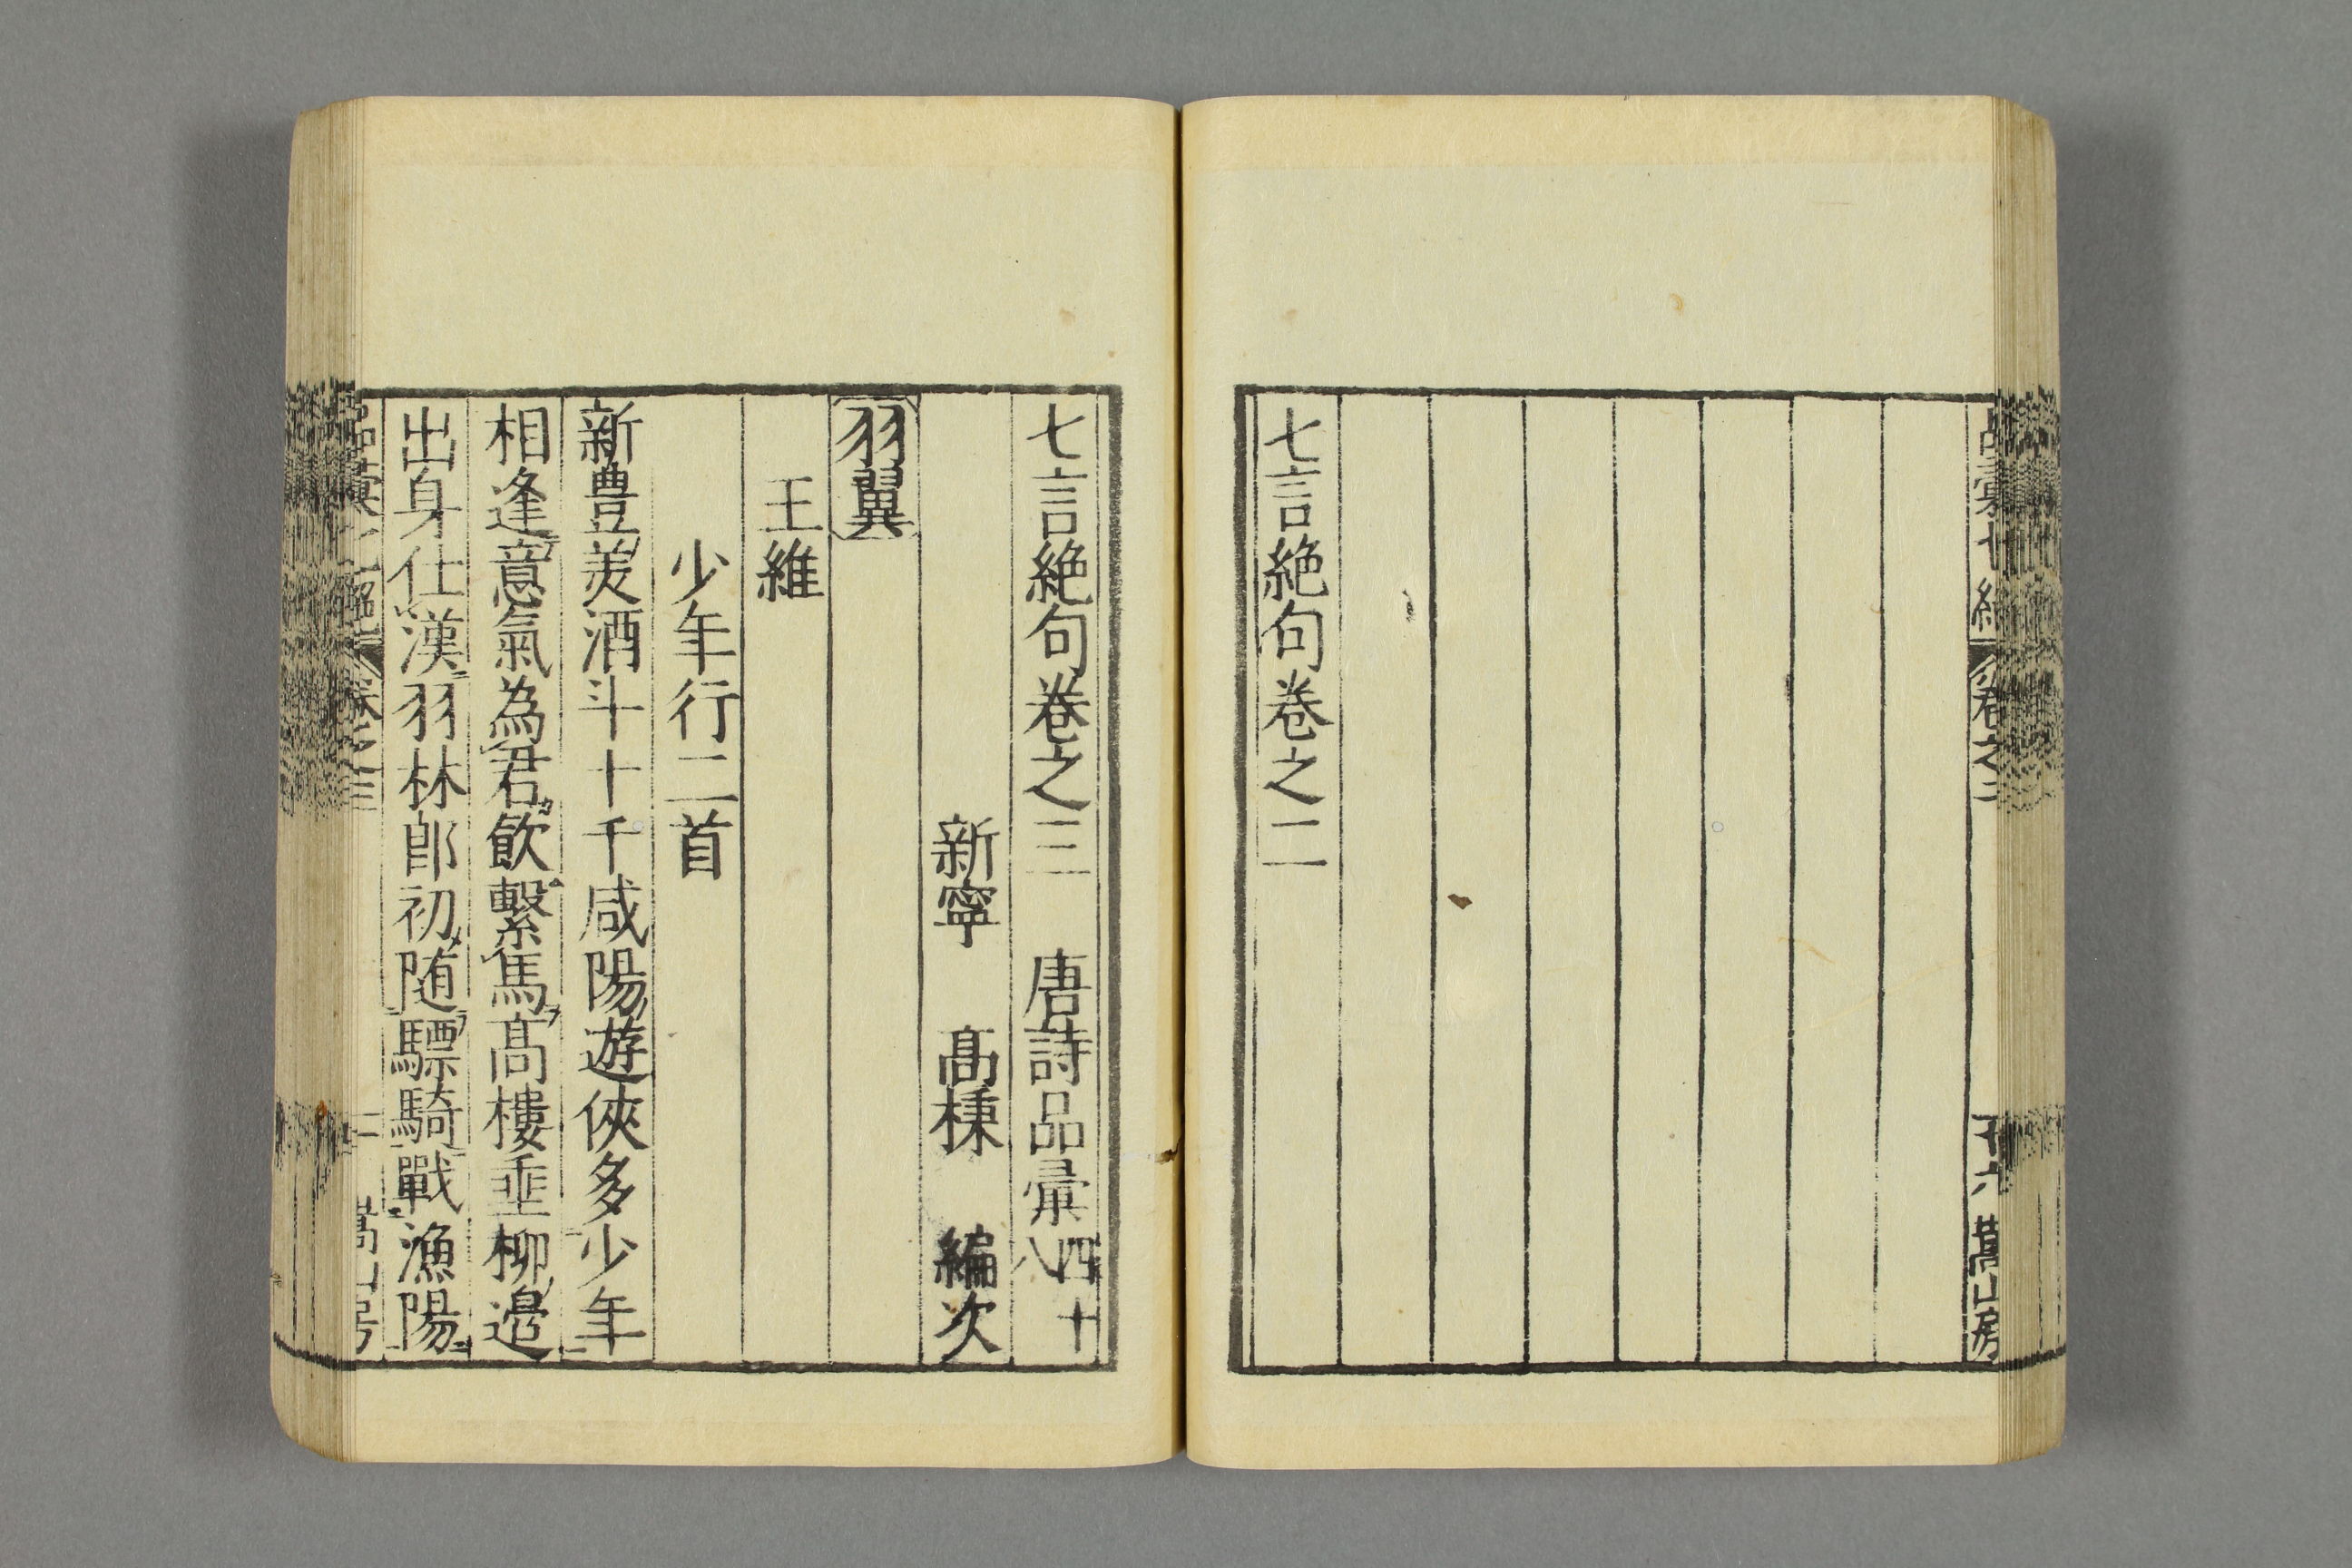 七言絶句卷之二
七言絶句卷之三 唐詩品彙四十八
新寧 髙棅 編次
羽翼
王維
少年行二首
新豊美酒斗十千咸陽遊俠多少年
相逢意氣為君飲繫馬髙樓垂柳邉
出身仕漢羽林郎初随驃騎戰漁陽